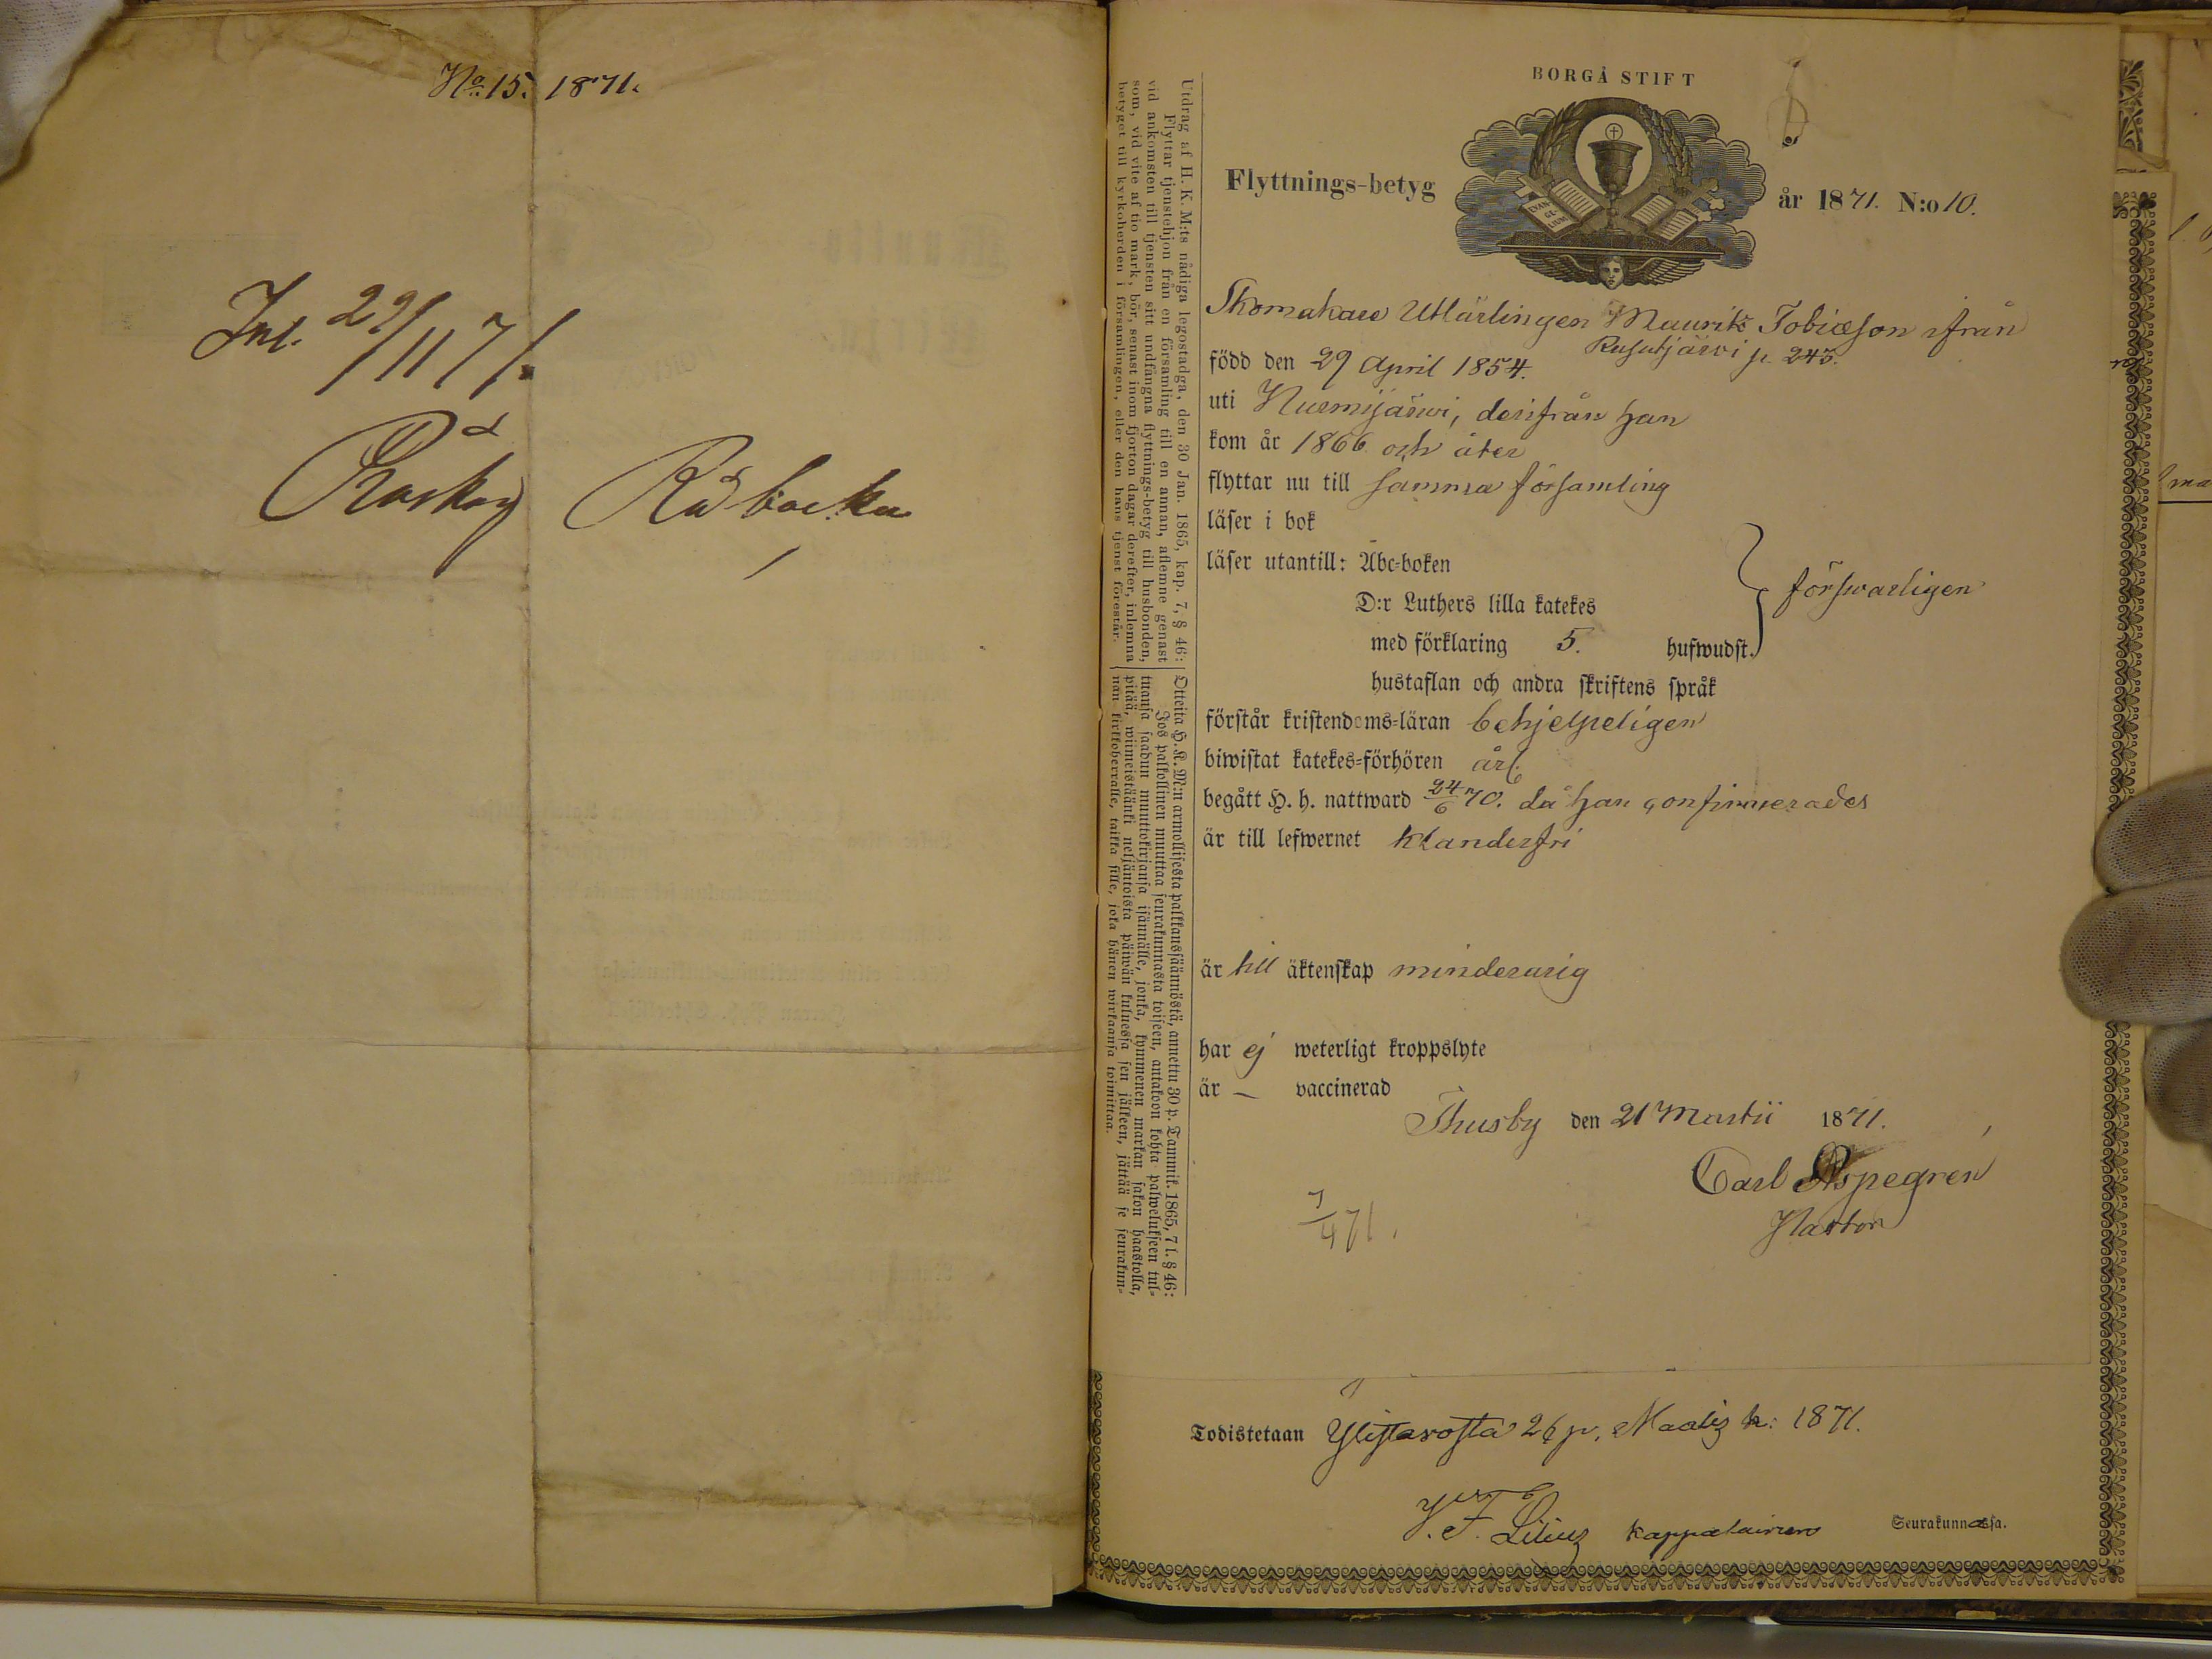 No 15. 1871.
Inl. 29/11 71.
Råbacka
BORGÅ STIFT
Flyttnings-betyg
EVAN GE LIUM
år 1871. N:o 10.
Skomakare Utlärlingen Maurits Tobiæson ifrån
Rusutjärvi p. 243.
född den 29 April 1854.
uti Nurmijärwi, derifrån han
kom år 1866 och åter
flyttar nu till samma församling
läser i bok
läser utantill: Abc-boken
D:r Luthers lilla katekes
med förklaring 5. hufwudst.
försvarligen
hustaflan och andra skriftens språk
förstår kristendoms-läran behjelpeligen
biwistat katekes-förhören årl.
begått H. h. nattward 24/6 70. då han confirmerades
är till lefwernet klanderfri
är till äktenskap minderårig
har ej weterligt kroppslyte
är — vaccinerad
Thusby den 21 Martii 1871.
Carl Aspegren
Pastor
7/4 71.
Utdrag af H. K. M:ts nådiga legostadga, den 30 Jan. 1865, kap. 7, § 46:
Flyttar tjenstehjon från en församling till en annan, aflemne genast
vid ankomsten till tjensten sitt undfångna flyttnings-betyg till husbonden,
som, vid vite af tio mark, bör, senast inom fjorton dagar derefter, inlemna
betyget till kyrkoherden i församlingen, eller den hans tjenst förestår.
Otteita H. K. M:n armollisesta palkkaussäännöstä, annettu 30 p. Tammik. 1865, 7 l. § 46:
Jos palkollinen muuttaa seurakunnasta toiseen, antakoon kohta palwelukseen tul-
tuansa saadun muuttokirjansa isännälle, jonka, kymmenen markan sakon haastolla,
pitää, wiimeistäänki neljäntoista päiwän kuluessa sen jälkeen, jättää se seurakun-
nan kirkkoherralle, taikka sille, joka hänen wirkaansa toimittaa.
Todistetaan Ylistarosta 26 p. Maalis k: 1871.
F. Lilius kappalainen
Seurakunnassa.